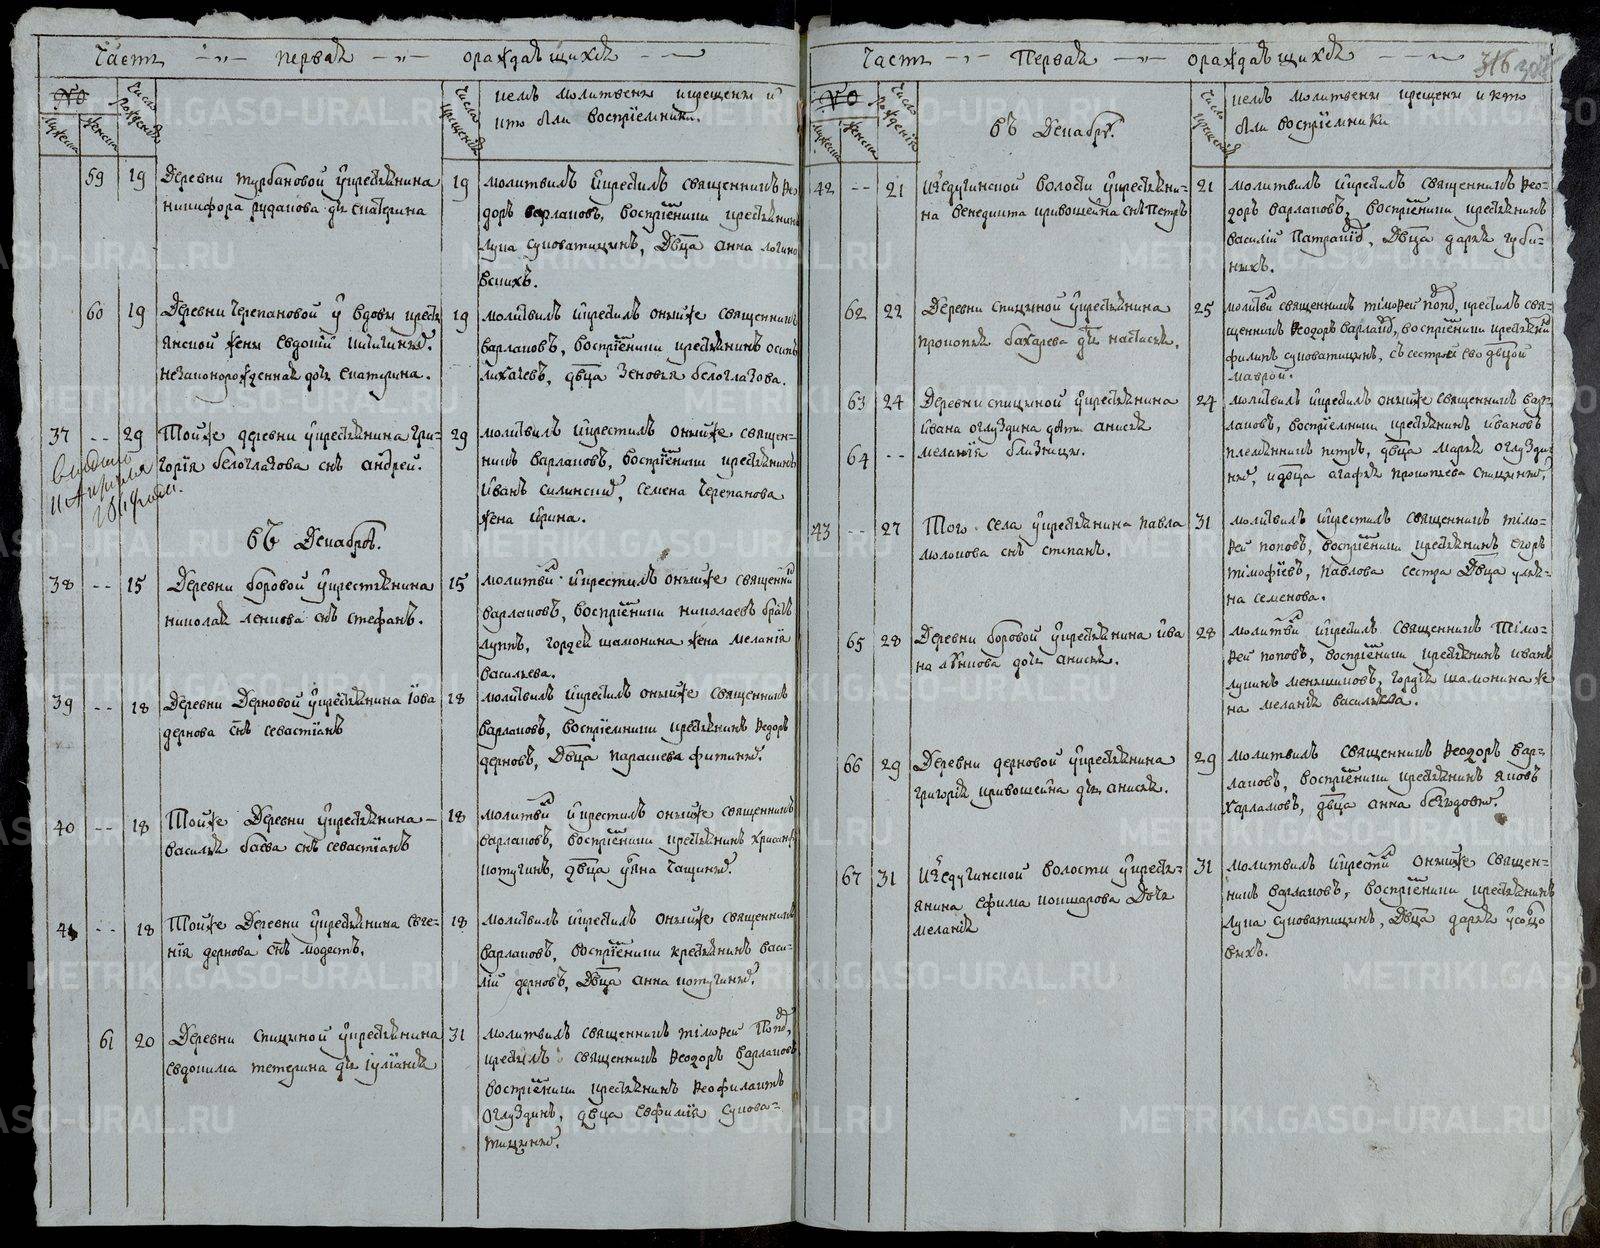 Часть первая ораждающихся
№
мужеска
женска
Число рождения
Число крещения
кемъ молитвенъ икрещенъ и
кто были восприемники.
59 19 Деревни турбановой укрестьянина
никифора рудакова дч екатерина
19 молитвилъ икрестилъ священникъ Ѳео-
доръ варлаковъ, восприемники крестьянинъ
лука суковатицынъ, Двца анна логино
вскихъ.
60 19 Деревни Черепановой у вдовы крестъ
янской жены евдокіи
незаконорожденная дочь екатерина.
19 молитвилъ икрестилъ онъже священникъ
варлаковъ, восприемники крестьянинъ осипъ
лихачевъ, двца зеновья белоглазова.
37 -- 29 Тойже деревни укрестьянина гри-
горія белоглазова снъ андрей.
29 молитвилъ икрестилъ онъже священ-
никъ варлаковъ, восприемники крестьянинъ
иванъ силинский, семена Черепанова
жена ирина.
въ Декабрѣ.
38 -- 15 Деревни боровой укрестьянина
николая снъ стефанъ.
15 молитвил икрестилъ онъже священник
варлаковъ, восприемники николаевъ братъ
гордея шамонина жена меланія
васильева.
39 -- 18 Деревни Дерновой укрестьянина іова
дернова снъ севастіянъ
18 молитвилъ икрестилъ онъже священникъ
варлаковъ, восприемники крестьянинъ Ѳедоръ
дерновъ, Двца парасковья
40 -- 18 Тойже Деревни укрестьянина
василья баева снъ севастіянъ
18 молитвил икрестилъ онъже священникъ
варлаковъ, восприемники крестьянинъ
котугинъ, двца
41 -- 18 Тойже Деревни укрестьянина евге-
нія дернова снъ модестъ.
18 молитвилъ икрестилъ онъже священникъ
варлаковъ, восприемники крестьянинъ васи-
лій дерновъ, Двца анна котугиныхъ.
61 20 Деревни спицыной укрестьянина
евдокима тетерина дч іуліанія
31 молитвилъ священникъ тімоѲей Попов,
крестилъ священникъ Ѳеодоръ варлаковъ
восприемники крестьянинъ Ѳеофилактъ
оглуздинъ, двца евфимія сукова-
тицыныхъ.
Часть Первая ораждающихся
316
№
мужеска
женска
Число рождения
въ Декабрѣ.
Число крещения
кемъ молитвенъ крещенъ и кто
были восприемники
42 -- 21 волости укрестьяни-
на венедикта кривошеина снъ Петръ
21 молитвилъ икрестилъ священникъ Ѳео-
доръ варлаковъ, восприемники крестьянинъ
василій Двца дарья губи-
ныхъ.
62 22 Деревни спицыной укрестьянина
прокопья бахарева дч настасья.
25 молитвил священникъ тімоѲей попов, крестилъ свя-
щенникъ Ѳеодоръ варлаков, восприемники крестьянин
филипъ суковатицынъ, съ сестрой ево двцой
маврой.
63 24 Деревни спицыной укрестьянина
ивана оглуздина дочь анисья
64 -- меланія близницы.
24 молитвилъ икрестилъ онъже священникъ вар-
лаковъ, восприемники крестьянинъ ивановъ
племянникъ петръ, двца марья оглузди
ныхъ, идвца агафья прокопьева спицыныхъ.
43 -- 27 Того села укрестьянина павла
молокова снъ степанъ.
31 молитвилъ икрестилъ священникъ тімо-
Ѳей поповъ, восприемники крестьянинъ егоръ
тімофіевъ, павлова сестра Двца улья-
на семенова.
65 28 Деревни боровой укрестьянина ива
на дочь анисья.
28 молитвил икрестилъ священникъ Тімо-
Ѳей поповъ, восприемники крестьянинъ иванъ
лукинъ меншиковъ, гордея шамонина же
на меланія васильева.
66 29 Деревни дерновой укрестьянина
григорья кривошеина дч анисья.
29 молитвилъ священникъ Ѳеодоръ вар-
лаковъ, восприемники крестьянинъ яковъ
харламовъ, двца анна
67 31 волости укресть-
янина ефима кошкарова Дочь
меланія
31 молитвилъ икрестил онъже священ-
никъ варлаковъ, восприемники крестьянинъ
лука суковатицынъ, Двца дарья
выхъ.
METRIKI.GASO-URAL.RU